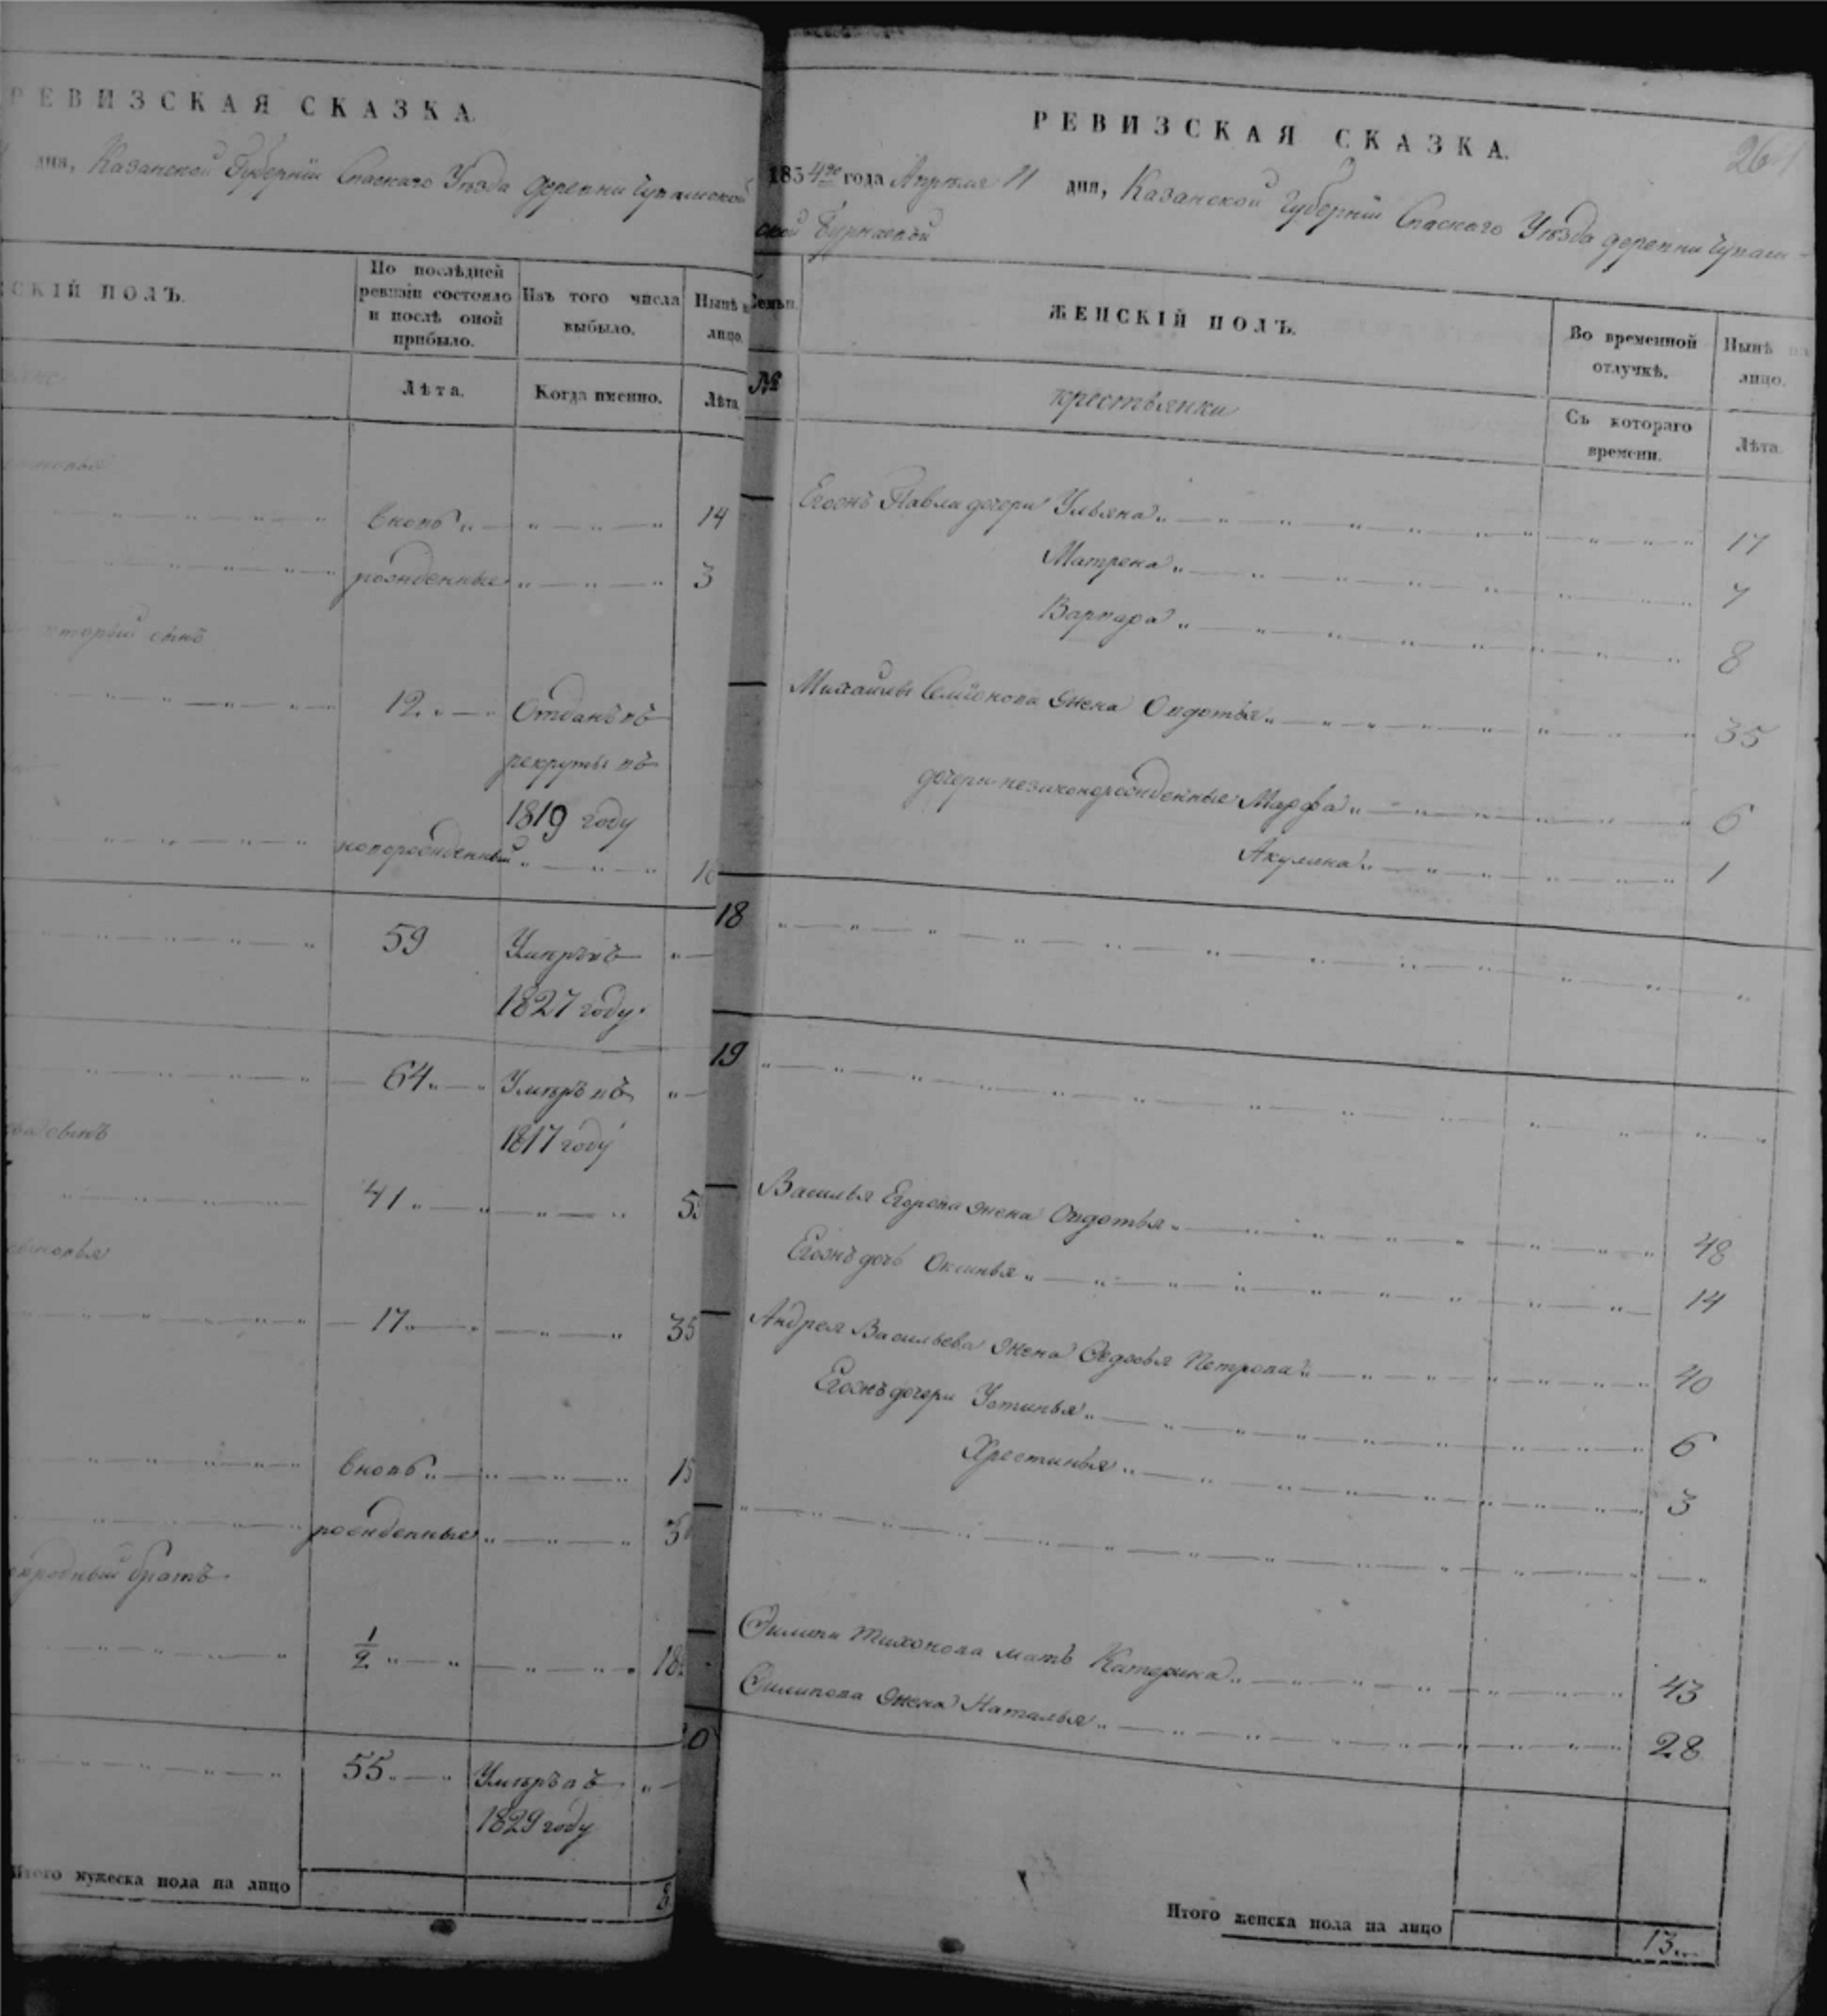 РЕВИЗСКАЯ СКАЗКА
дня, Казанской Губернiи Спаскаго Уѣзда деревни Чувашской
СКIЙ ПОЛЪ.
По послѣдней ревизiи состояло и послѣ оной прибыло.
Изъ того числа выбыло.
Нынѣ
лицо.
Лѣта.
Когда именно.
Лѣта.
вновь 14
рожденные 3
вторый сынъ
12 Отданъ въ
рекруты въ
1819 году
новорожденный
59 Умеръ въ
1827 году
64 Умеръ въ
1817 году
сынъ
41
сыновья
17 35
вновь
рожденные
братъ
1/2
55 Умеръ въ
1829 году
Итого мужеска пола на лицо
РЕВИЗСКАЯ СКАЗКА.
261
1834го года Апреля 11 дня, Казанской Губернiи Спаскаго Уѣзда деревни Чуваш-
ской Бурнаевой
Семьи.
ЖЕНСКIЙ ПОЛЪ.
Во временной отлучкѣ.
Нынѣ на лицо.
№
крестьянки
Съ котораго времени.
Лѣта.
Егожъ Павла дочери Ульяна 17
Матрена 7
Варвара 8
Михайлы Семионова жена Овдотья 35
дочери незаконорожденные Марфа 6
Акулина 1
18
19
Василья Егорова жена Овдотья 48
Егожъ дочь Оксинья 14
Андрея Васильева жена Федосья Петрова 40
Егожъ дочери Устинья 6
Хрестинья 3
Филипа Тихонова мать Катерина 43
Филипова жена Наталья 28
Итого женска пола на лицо 13